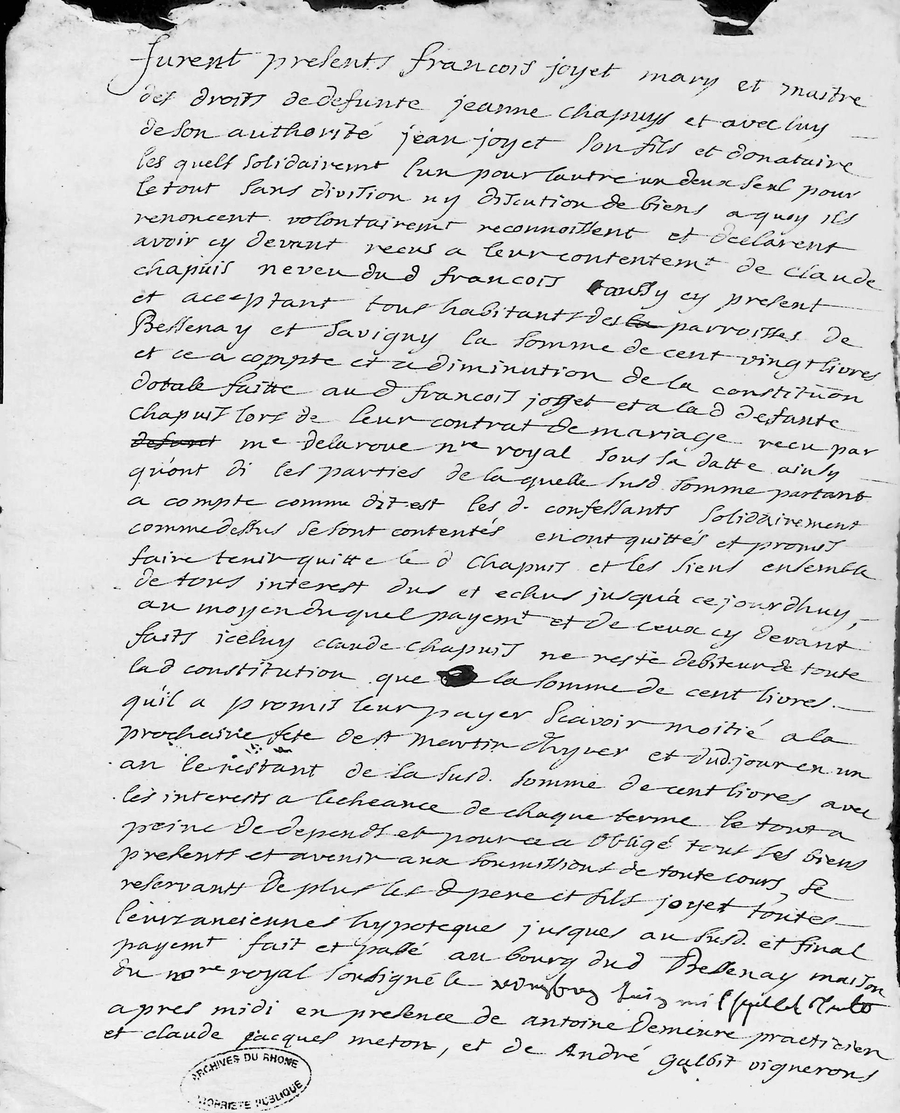 furent presents francois joyet mary et maitre
des droits de defunte jeanne chapuys et avec luy
de son authorité jean joyet son fils et donataire
les quels solidairemt lun pour lautre un deux seul pour
le tout sans division ny discution de biens a quoy ils
renoncent volontairemt reconnoissent et declarent
avoir cy devant recus a leur contentemt de claude
chapuis neveu du d francois aussy cy present
et acceptant tous habitants des la parroisses de
Bessenay et Savigny la somme de cent vingt livres
et ce a compte et a diminution de la constitution
dotale faitte au d francois joyet et a la d defunte
chapuis lors de leur contrat de mariage recu par
defunt me delaroue nre royal sous sa datte ainsy
qu'ont di les parties de laquelle susd. somme partant
a compte comme dit est les d. confessants solidairement
comme dessus se sont contentés en ont quittés et promis
faire tenir quitte le d chapuis et les siens ensemble
de tous interest dus et echus jusqu'a ce jourdhuy,
au moyen du quel payemt et de ceux cy devant
faits iceluy claude chapuis ne reste debiteur de toute
la d constitution que la somme de cent livres
qu'il a promis leur payer scavoir moitié a la
prochaine fete de st martin dhyver et dud. jour en un
an le restant de la susd. somme de cent livres avec
les interests a lecheance de chaque terme le tout a
peine de depends et pour ce a obligé tout ses biens
presents et avenir aux soumissions de toute cours, se
reservants de plus les d pere et fils joyet toutes
leurs anciennes hypoteques jusques au susd. et final
payemt fait et passé au bourg dud Bessenay maison
du nore royal soussigné le juin mil sept cent
apres midi en presence de antoine Demeure practicien
et claude jacques meton, et de André galbit vignerons
ARCHIVES DU RHONE
PROPRIETE PUBLIQUE